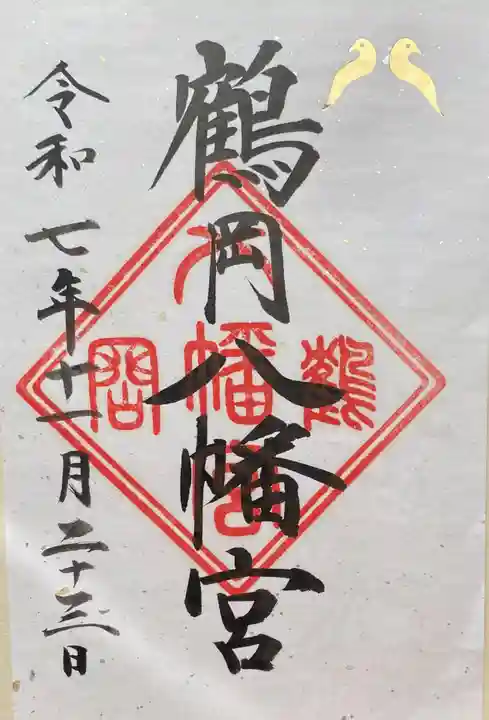 鶴岡八幡宮
令和七年十一月二十三日
鶴
岡
八
幡
宮